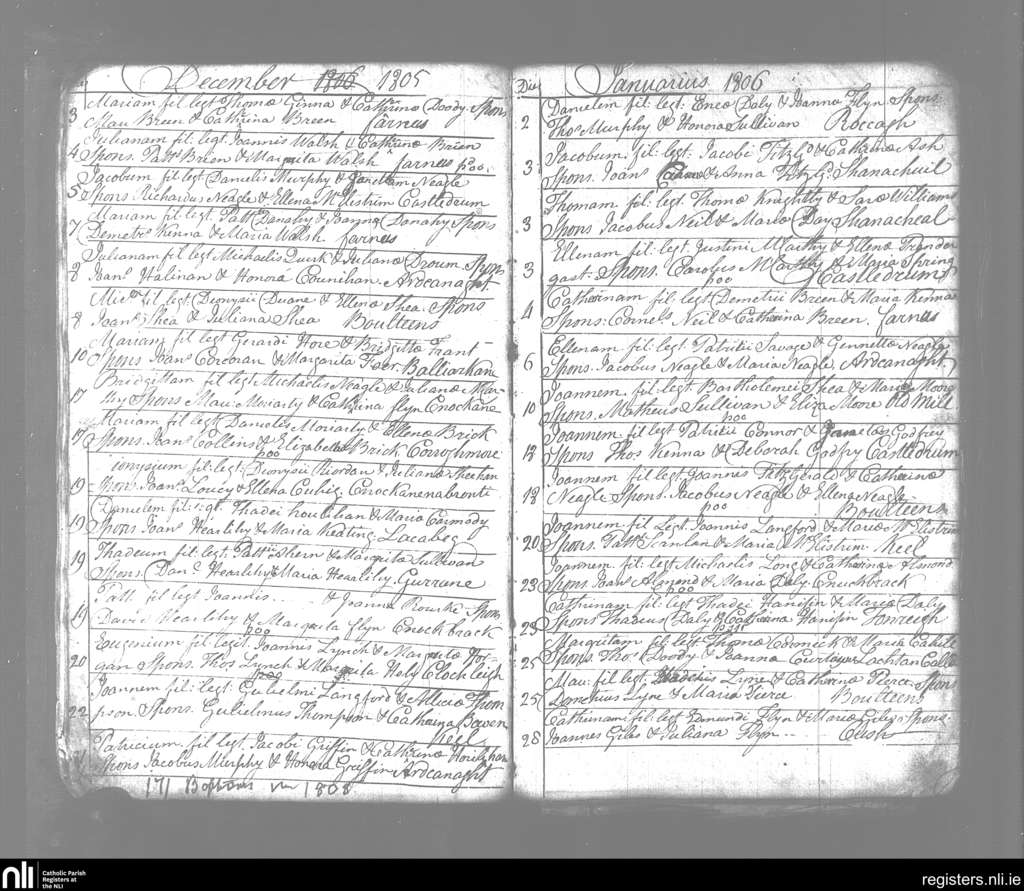 December 1806 1805
3 Mariam fil legt Thomæ Ginna & Cathrinæ Doody Spons
Mau Breen & Cathrina Breen farnes
Julianam fil: legt. Joannis Walsh & Cathrinæ Brien
4 Spons. Patt Brien & Margrita Walsh farnes poo.
Jacobum fil legt Danielis Murphy & Neagle
5 Spons Richardus Neagle & Ellena McElistrim Castledrum
Mariam fil: legt. Patt Danahy & Joanna Danahy Spons
7 Demets Kenna & Maria Walsh. farnes
Julianam fil legt Michaelis Quirk & Julianæ Droum. Spons
8 Joans Halinan & Honora Counihan. Ardcanaght
fil legt Dionysii Duane & Ellenæ Shea. Spons
8 Joans Shea & Juliana Shea Boulteens
Mariam fil legt Gerardi Hore & Bridgittæ Frant
10 Spons Joans Corcoran & Margarita Foer. Balliarkane
Bridgittam fil legt Michaelis Neagle & Julianæ Mur-
17 Spons Mau: Moriarty & Cathrina flyn Cnockane
Mariam fil legt Danieles Moriarty & Ellenæ Brick
17 Spons. Joans Collins & Elizabetha Brick
poo
ionysium fil: legt: Dionysii Riordan & Julianæ Sheehan
19 Joans Loucy & Ellena Cnockanenabronti
Danielem fil: legt. Thadei houlihan & Maria Carmody
19 Spons. Joans Hearlihy & Maria Keating. Lacabeg
Thadeum fil: legt: Patt Ahern & Margrita Sullivan
19 Spons. Danl Hearlihy & Maria Hearlihy. Gurrune
Patt fil legt Joannis... & Joanna Rourke Spons
19 David Hearlihy & Margrita flyn Cnockbrack
poo
Eugenium fil legt. Joannes Lynch & Margritæ Hor-
20 gan Spons. Thos Lynch & Margrita Clockleigh
poo
Joannem fil: legt: Gulielmi Langford & Aliciæ Thom
22 pson. Spons. Gulielmus Thompson & Cathrina Bowen
Patricium fil legt Jacobi Griffin & Cathrinæ Houlihan
Spons Jacobus Murphy & Honora Griffin Ardcanaght
171 Baptisms in 1805
Die Januarius 1806
Danielem fil: legt: Eneæ Daly & Joanna Flyn Spons
2 Thos Murphy & Honora Sullivan Roccagh
Jacobum fil: legt: Jacobi Fitzgd & Cathrinæ Ash
3 Spons. Joans & Anna Fitzgd Shanachuil
Thomam fil: legt: Thomæ Knightly & Saræ Williams
3 Spons Jacobus Neil & Maria Day Shanacheal
Ellenam fil: legt Justini McCarthy & Ellenæ Prender
3 gast. Spons. Carolus McCarthy & Maria Spring
poo Castledrum
Cathrinam fil legt Demetrii Breen & Maria Kenna
4 Spons: Cornels Neil & Cathrina Breen. farnes
Ellenam fil: legt Patritii Savage & Gennettæ Neagle
6 Spons. Jacobus Neagle & Maria Neagle. Ardcanaght
Joannem fil legt Bartholemei Shea & Maria Moore
10 Spons. Matheus Sullivan & Eliza Moore Old Mill
poo
Joannem fil legt Patritii Connor & Godfrey
12 Spons Thos Kenna & Deborah Godfry Castledrum
Joannem fil legt Joannes Fitzgerald & Cathrinæ
12 Neagle Spons. Jacobus Neagle & Ellena Neagle
poo Boulteens
Joannem fil Legt Joannis Langford & Mariæ McElistrim
20 Spons. Patt Scanlan & Maria McElistrim Keel
Joannem fil: legt Michaelis Long & Cathrinæ Almond
23 Spons. Joans Almond & Maria Daly Cnuchbrack
poo
Cathrinam fil: legt Thadei Hanifen & Mariæ Daly
23 Spons Thadeus Daly & Cathrina Hanifin
Margritam fil legt Thomæ Cormick & Mariæ Cahill
25 Spons. Thos Doody & Joanna
Mau: fil legt Lyne & Cathrinæ Peirce Spons
25 Lyne & Maria Peirce Boulteens
Cathrinam fil legt Edmundi Flyn & Mariæ Giles Spons
28 Joannes Giles & Juliana Flyn.. Clush
nli Catholic Parish
Registers at
the NLI
registers.nli.ie